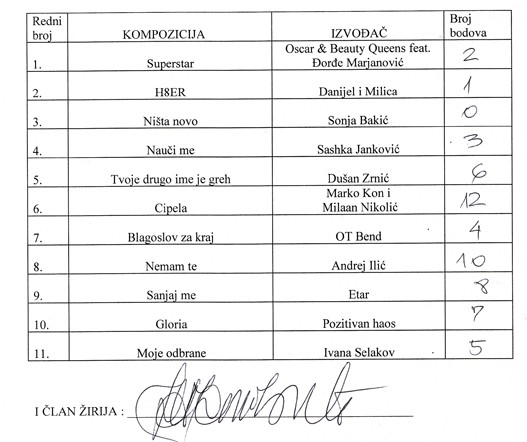 Redni broj KOMPOZICIJA IZVOĐAČ Broj bodova
1. Superstar Oscar & Beauty Queens feat. Đorđe Marjanović 2
2. H8ER Danijel i Milica 1
3. Ništa novo Sonja Bakić 0
4. Nauči me Sashka Janković 3
5. Tvoje drugo ime je greh Dušan Zrnić 6
6. Cipela Marko Kon i Milaan Nikolić 12
7. Blagoslov za kraj OT Bend 4
8. Nemam te Andrej Ilić 10
9. Sanjaj me Etar 8
10. Gloria Pozitivan haos 7
11. Moje odbrane Ivana Selakov 5
I ČLAN ŽIRIJA :